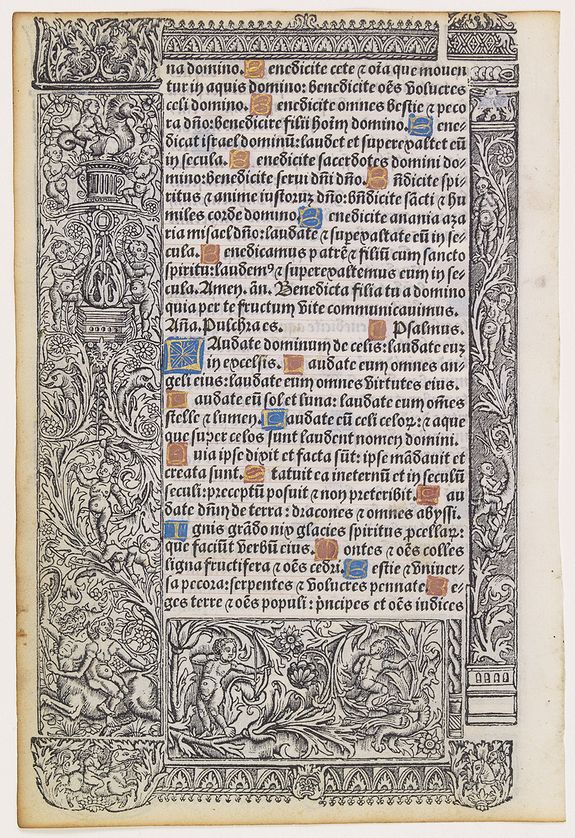 na domino. B enedicite cete ⁊ oīa que mouen
tur in aquis domino: benedicite oēs volucres
celi domino. B enedicite omnes bestie ⁊ peco
ra dño: benedicite filii hoīm domino. B ene-
dicat israel dominū: laudet et superexaltet eū
in secula. B enedicite sacerdotes domini do-
mino: benedicite serui dñi dño. B ñdicite spi-
ritus ⁊ anime iustorum dño: bñdicite sācti ⁊ hu
miles corde domino. B enedicite anania aza
ria misael dño: laudate ⁊ supexaltate eū in se-
cula. B enedicamus patrē ⁊ filiū cum sancto
spiritu: laudemꝰ ⁊ superexaltemus eum in se-
cula. Amen. añ. Benedicta filia tu a domino
quia per te fructum vite communicauimus.
Aña. Pulchra es. Psalmus.
L Audate dominum de celis: laudate euz
in excelsis. L audate eum omnes an-
geli eius: laudate eum omnes virtutes eius.
L audate eū sol et luna: laudate eum om̄es
stelle ⁊ lumen. L audate eū celi celoꝝ: ⁊ aque
que super celos sunt laudent nomen domini.
Q uia ipse dixit et facta sūt: ipse mādauit et
creata sunt. S tatuit ea ineternū et in seculū
seculi: preceptū posuit ⁊ non preteribit. L au
date dñm de terra: dracones ⁊ omnes abyssi.
I gnis grādo nix glacies spiritus ꝓcellaꝝ:
que faciūt verbū eius. M ontes ⁊ oēs colles
ligna fructifera ⁊ oēs cedri. B estie ⁊ vniuer-
sa pecora: serpentes ⁊ volucres pennate. R e-
ges terre ⁊ oēs populi: p̄ncipes et oēs iudices